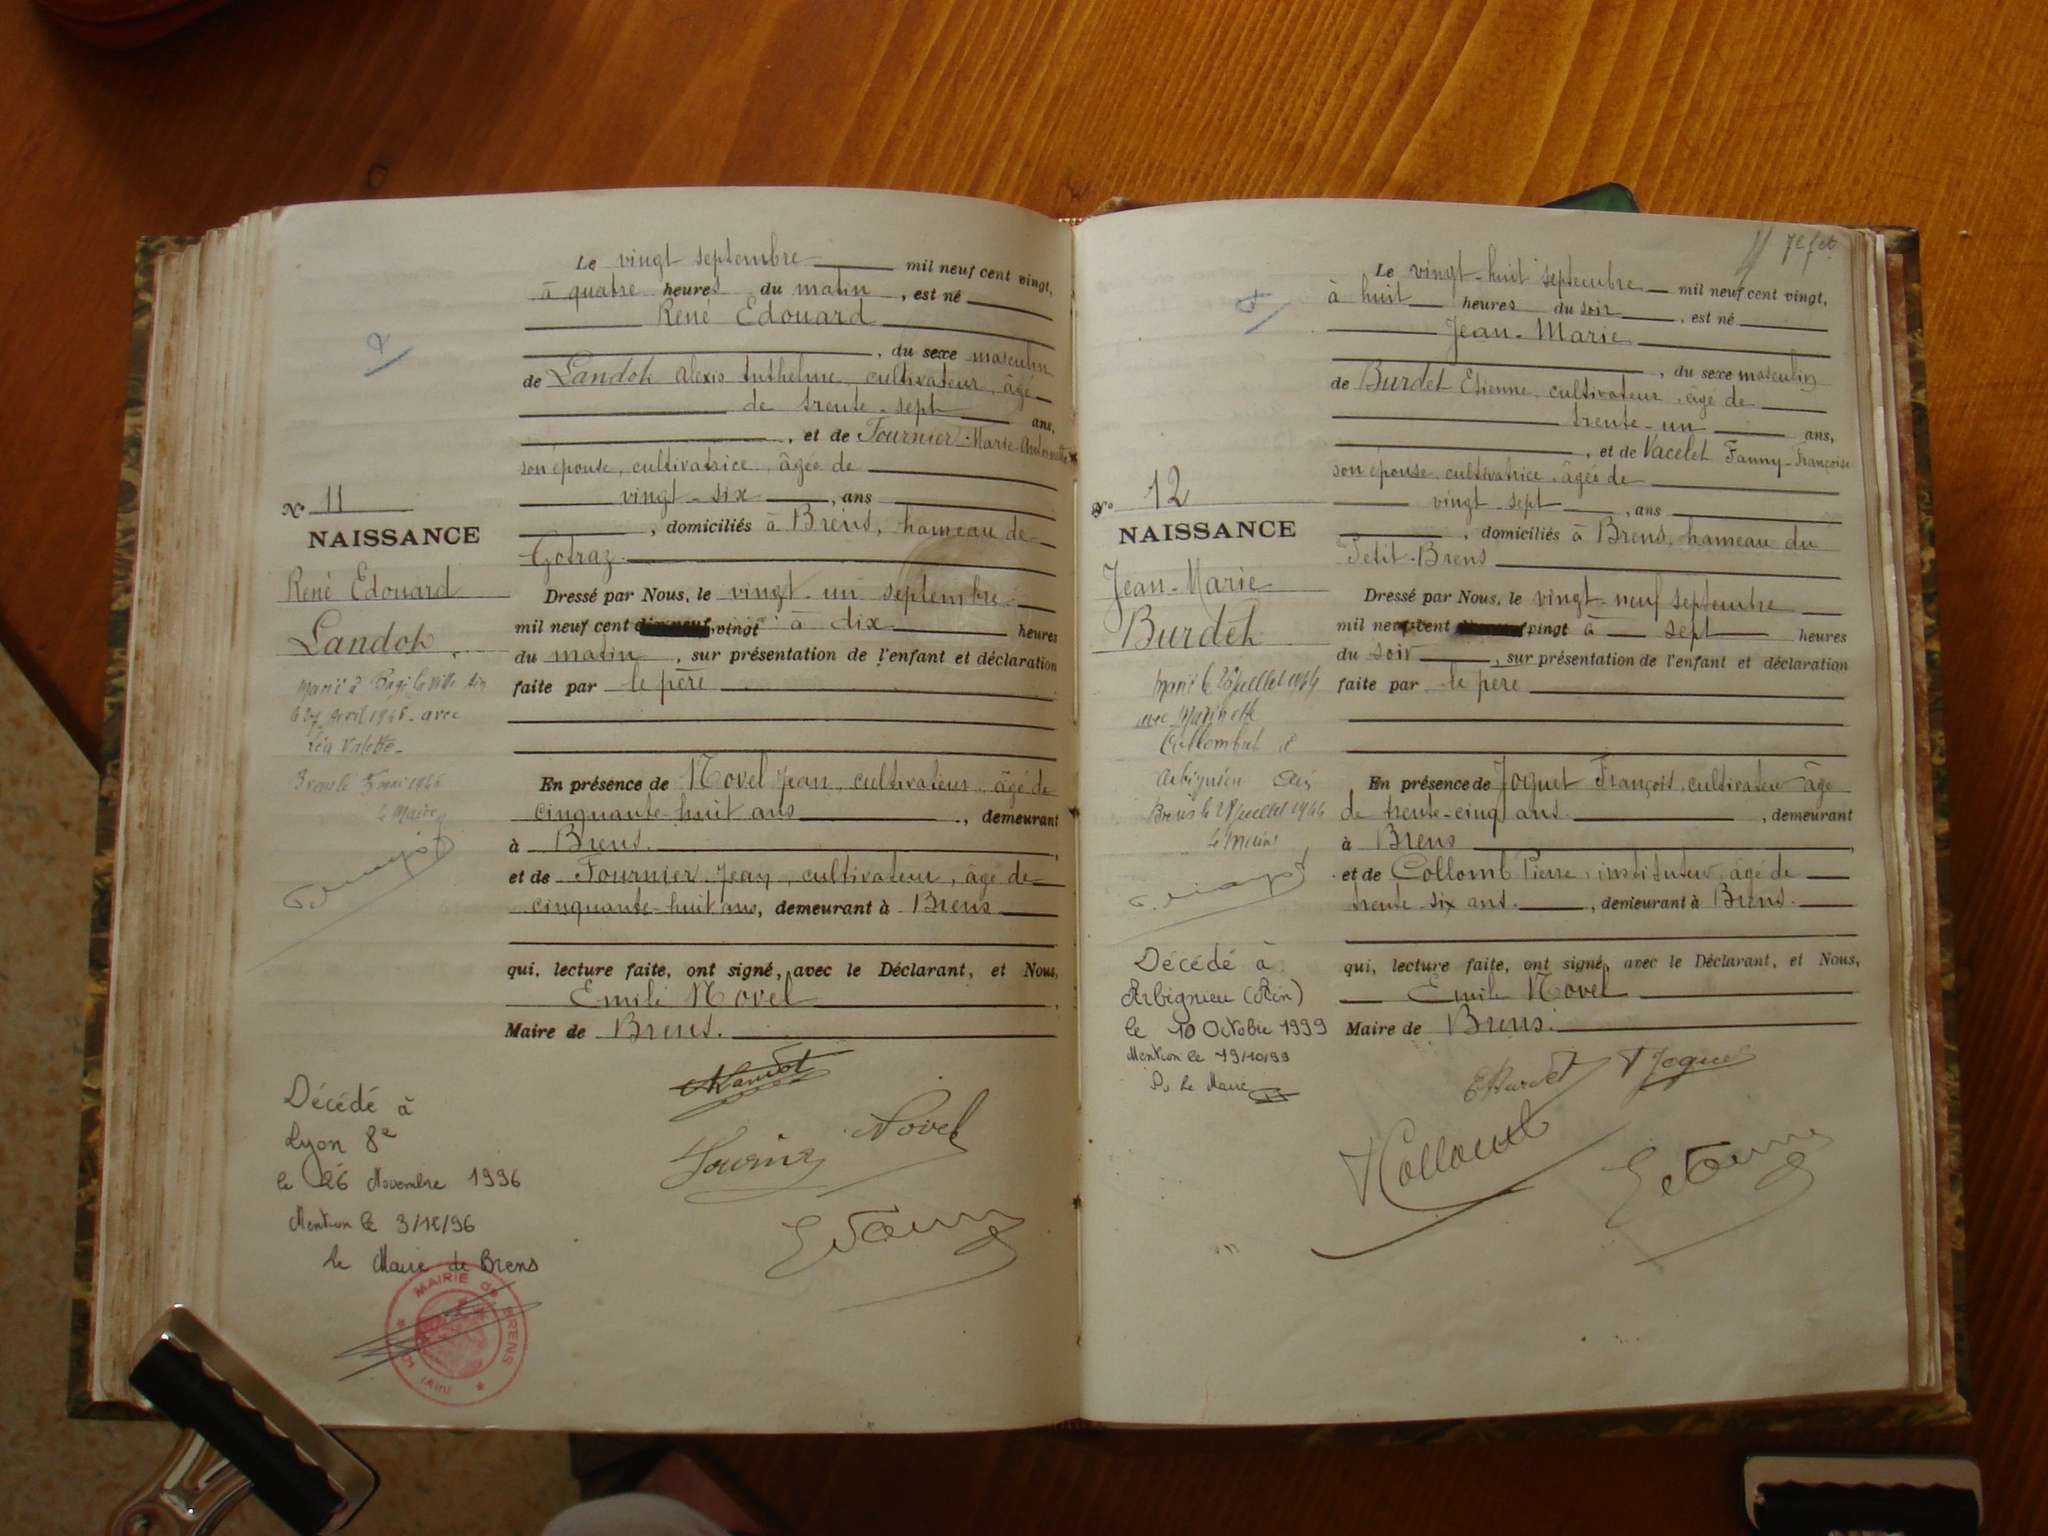 Le vingt septembre mil neuf cent vingt,
à quatre heures du matin, est né
René Edouard
, du sexe masculin
de Landoh Alexis Anthelme, cultivateur, âgé
de trente-sept ans,
, et de Fournier Marie-Antoinette
son épouse, cultivatrice, âgée de
vingt-six, ans
, domiciliés à Brens, hameau de
Gotraz.
N° 11
NAISSANCE
René Edouard
Landoh
Dressé par Nous, le vingt-un septembre
mil neuf cent vingt à dix heures
du matin, sur présentation de l'enfant et déclaration
faite par le père
Marié à
le 27 Avril 1946 avec
Léa Valette
Brens le 5 mai 1946
le Maire
En présence de Novel Jean, cultivateur, âgé de
cinquante-huit ans, demeurant
à Brens.
et de Fournier Jean, cultivateur, âgé de
cinquante-huit ans, demeurant à Brens
qui, lecture faite, ont signé, avec le Déclarant, et Nous,
Emile Novel
Maire de Brens.
Novel
Décédé à
Lyon 8e
le 26 Novembre 1996
Mention le 3/12/96
le Maire de Brens
MAIRIE de BRENS
(Ain)
Le vingt-huit septembre mil neuf cent vingt,
à huit heures du soir, est né
Jean-Marie
, du sexe masculin
de Burdet Etienne, cultivateur, âgé de
trente-un ans,
, et de Vacelet Fanny-Françoise
son épouse, cultivatrice, âgée de
vingt-sept, ans
, domiciliés à Brens, hameau du
Petit-Brens
N° 12
NAISSANCE
Jean-Marie
Burdet
Dressé par Nous, le vingt-neuf septembre
mil neuf cent vingt à sept heures
du soir, sur présentation de l'enfant et déclaration
faite par le père
Marié le juillet 1944
avec Marinette
Collombet à
Arbignieu Ain
Brens le juillet 1944
le Maire
En présence de Joguet François, cultivateur âgé
de trente-cinq ans, demeurant
à Brens
et de Collomb Pierre, instituteur, âgé de
trente-six ans., demeurant à Brens.
qui, lecture faite, ont signé, avec le Déclarant, et Nous,
Emile Novel
Maire de Brens.
Décédé à
Arbignieu (Ain)
le 10 Octobre 1999
Mention le 19/10/99
P. Le Maire
E Burdet
Joguet
Collomb